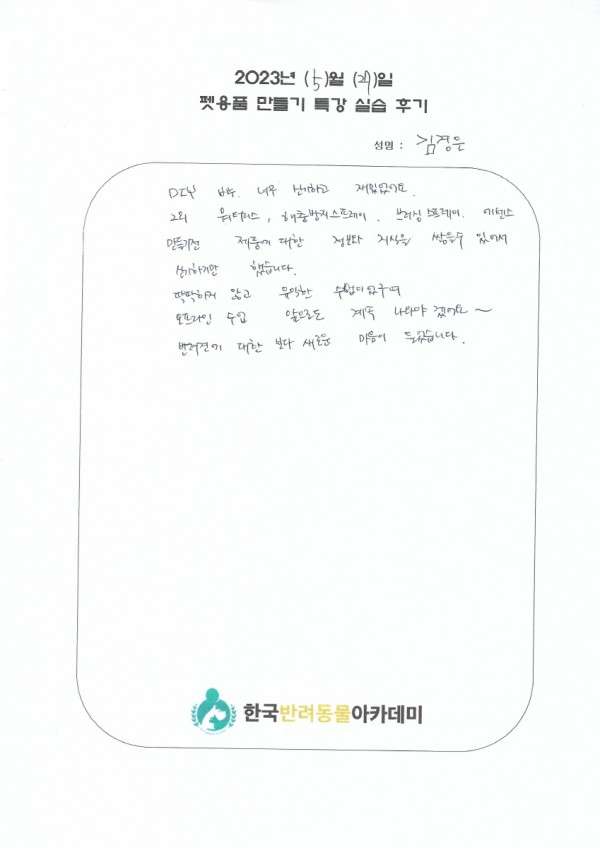 2023년 (5)월 (27)일
펫용품 만들기 특강 실습 후기
성명 : 김경은
DIY 비누. 너무 신기하고 재밌었어요.
그외 워터리스, 해충방지스프레이, 브러싱스프레이. 에센스
만들기전 제품에 대한 정보와 지식을 쌓을수 있어서
신기하기만 했습니다.
딱딱하지 않고 유익한 수업이였구여
오프라인 수업 앞으로도 계속 나와야 겠어요~
반려견에 대한 보다 새로운 마음이 들었습니다.
한국반려동물아카데미